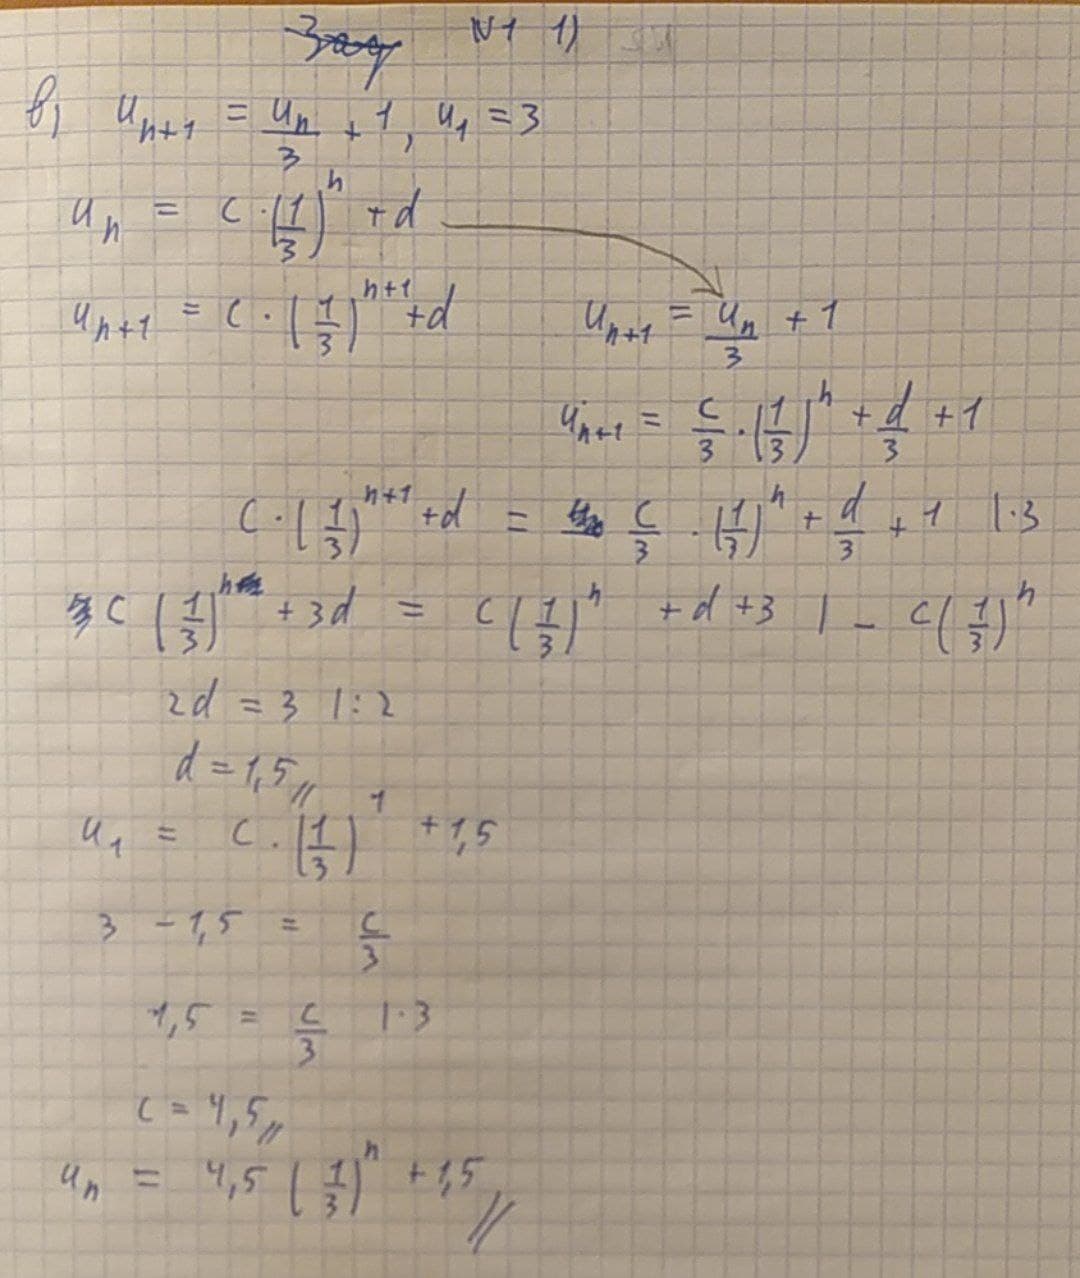 N1 1)
в) u_{n+1} = u_n/3 + 1, u_1 = 3
u_n = c · (1/3)^n + d
u_{n+1} = c · (1/3)^{n+1} + d u_{n+1} = u_n/3 + 1
u_{n+1} = c/3 · (1/3)^n + d/3 + 1
c · (1/3)^{n+1} + d = c/3 · (1/3)^n + d/3 + 1 | · 3
c (1/3)^n + 3d = c (1/3)^n + d + 3 | - c (1/3)^n
2d = 3 | : 2
d = 1,5 //
u_1 = c · (1/3)^1 + 1,5
3 - 1,5 = c/3
1,5 = c/3 | · 3
c = 4,5 //
u_n = 4,5 (1/3)^n + 1,5 //